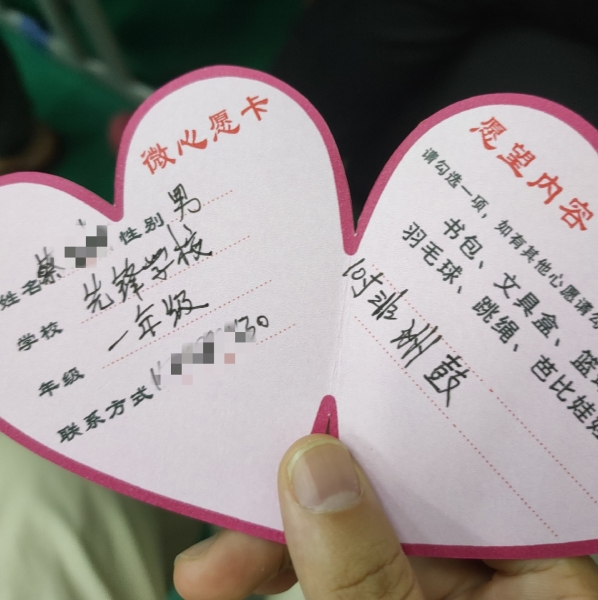 微心愿卡
姓名 性别 男
学校 先锋学校
年级 一年级
联系方式
愿望内容
请勾选一项，如有其他心愿请勾
书包、文具盒、篮
羽毛球、跳绳、芭比娃娃
10寸非洲鼓